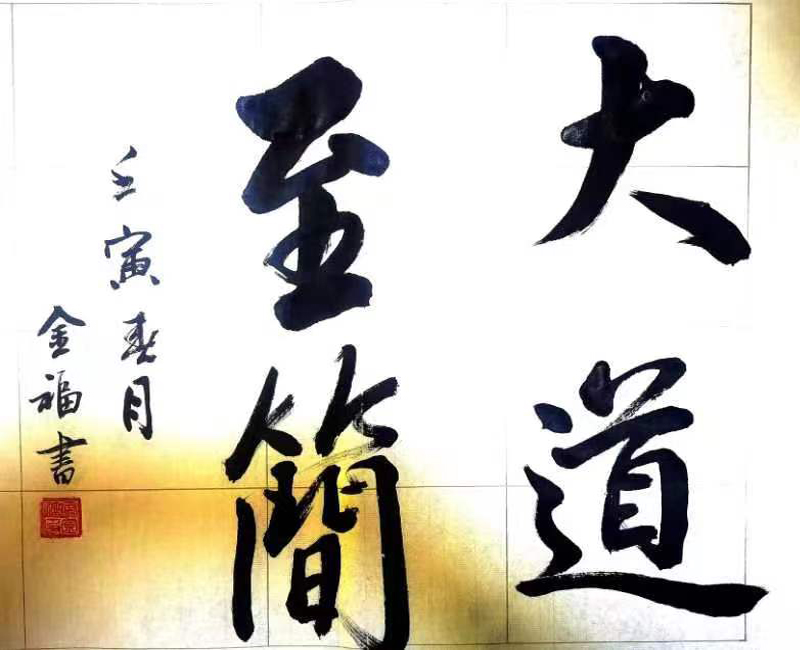 大道
至簡
壬寅春月
金福書